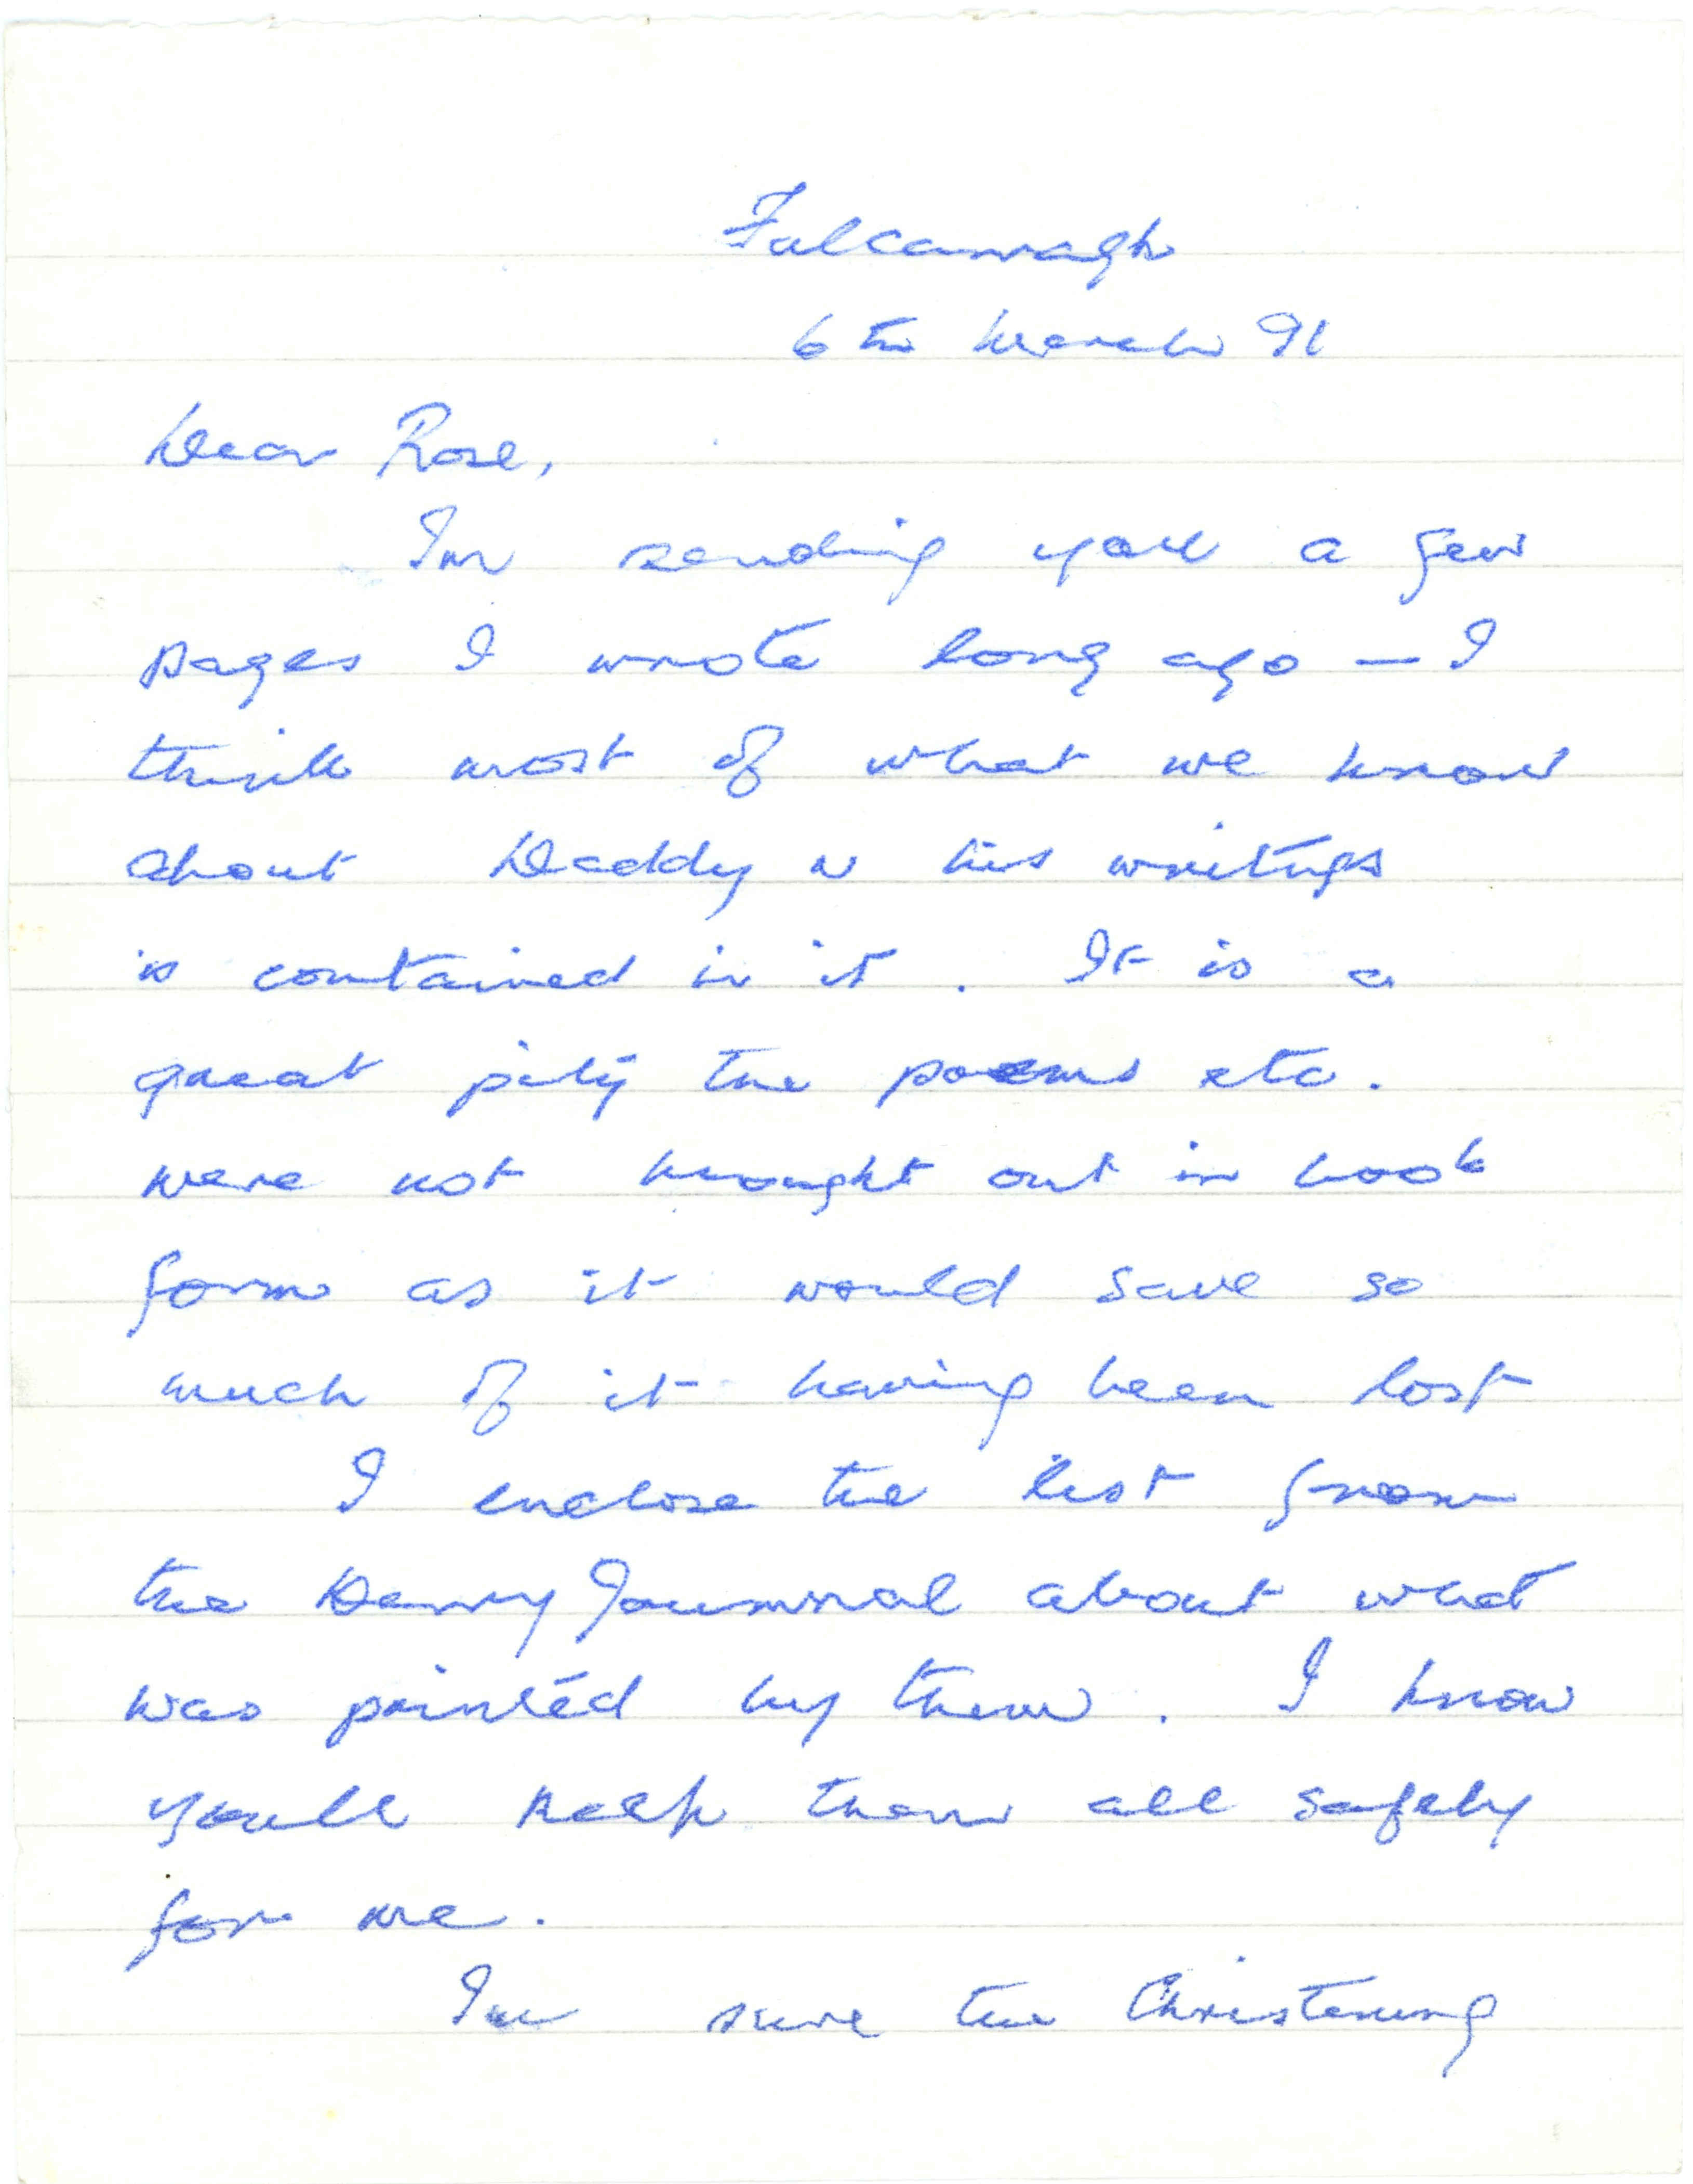 Falcarragh
6th March 91
Dear Rose,
Im sending you a few
pages I wrote long ago — I
think most of what we know
about Daddy & his writings
is contained in it. It is a
great pity the poems etc.
were not brought out in book
form as it would save so
much of it having been lost
I enclose the list from
the Derry Journal about what
was printed by them. I know
youll keep them all safely
for me.
Im sure the Christening